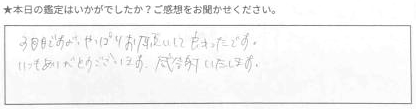 ★本日の鑑定はいかがでしたか？ご感想をお聞かせください。
3回目ですが、やっぱりお願いしてよかったです。
いつもありがとうございます。感謝いたします。